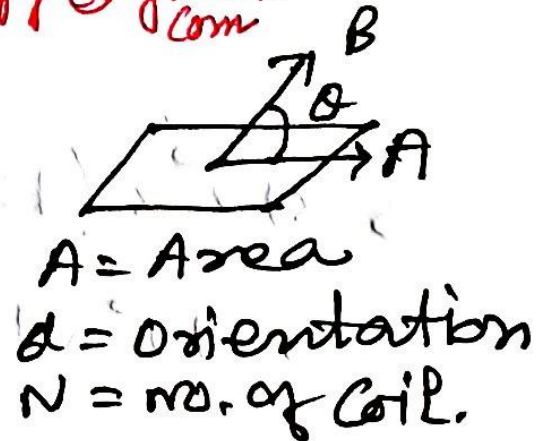 com
B
θ
A
A = Area
α = Orientation
N = no. of Coil.